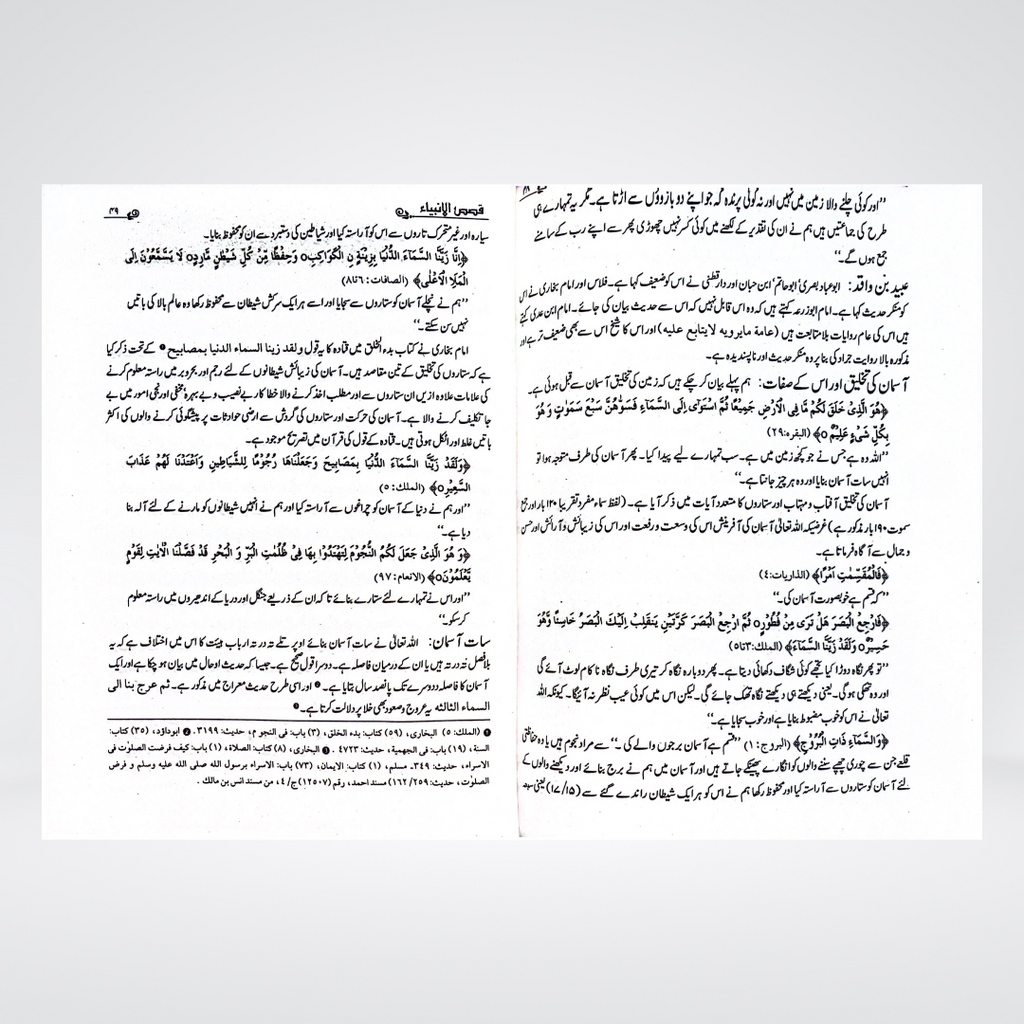 ”اور کوئی چلنے والا زمین میں نہیں اور نہ کوئی پرندہ کہ جو اپنے دو بازوؤں سے اڑتا ہے۔ مگر یہ تمہارے ہی
طرح کی جماعتیں ہیں ہم نے ان کی تقدیر کے لکھنے میں کوئی کسر نہیں چھوڑی پھر سے اپنے رب کے سامنے
جمع ہوں گے۔“
عبید بن واقد: ابو عباد بصری‘ ابو حاتم‘ ابن حبان اور دارقطنی نے اس کو ضعیف کہا ہے۔ فلاس اور امام بخاری نے اس
کو منکر حدیث کہا ہے۔ امام ابوزرعہ کہتے ہیں کہ وہ اس قابل نہیں کہ اس سے حدیث بیان کی جائے۔ امام ابن عدی کہتے
ہیں اس کی عام روایات بلا متابعت ہیں (عامة مايرويه لايتابع عليه) اور اس کا شیخ اس سے بھی ضعیف تر ہے اور
مذکورہ بالا روایت جراد کی بنا پر وہ منکر حدیث اور ناپسندیدہ ہے۔
آسمان کی تخلیق اور اس کے صفات: ہم پہلے بیان کر چکے ہیں کہ زمین کی تخلیق آسمان سے قبل ہوئی ہے۔
﴿هُوَ الَّذِیْ خَلَقَ لَكُمْ مَّا فِی الْاَرْضِ جَمِیْعًا ثُمَّ اسْتَوٰی اِلَی السَّمَآءِ فَسَوّٰهُنَّ سَبْعَ سَمٰوٰتٍ وَ هُوَ
بِكُلِّ شَیْءٍ عَلِیْمٌ﴾ (البقره:۲۹)
”اللہ وہ ہے جس نے جو کچھ زمین میں ہے۔ سب تمہارے لیے پیدا کیا۔ پھر آسمان کی طرف متوجہ ہوا تو
انہیں سات آسمان بنایا اور وہ ہر چیز جانتا ہے۔“
آسمان کی تخلیق آفتاب و مہتاب اور ستاروں کا متعدد آیات میں ذکر آیا ہے۔ (لفظ سماء مفرد تقریبا ۱۲۰ بار اور جمع
سموت ۱۹۰ بار مذکور ہے) غرضیکہ اللہ تعالیٰ آسمان کی آفرینش اس کی وسعت و رفعت اور اس کی زیبائش و آرائش اور حسن
و جمال سے آگاہ فرماتا ہے۔
﴿فَالْمُقَسِّمٰتِ اَمْرًا﴾ (الذاریات:٤)
”کہ قسم ہے خوبصورت آسمان کی۔“
﴿فَارْجِعِ الْبَصَرَ هَلْ تَرٰی مِنْ فُطُوْرٍ ثُمَّ ارْجِعِ الْبَصَرَ كَرَّتَیْنِ یَنْقَلِبْ اِلَیْكَ الْبَصَرُ خَاسِئًا وَّهُوَ
حَسِیْرٌ وَلَقَدْ زَیَّنَّا السَّمَآءَ﴾ (الملك:۳تا۵)
”تو پھر نگاہ دوڑا کیا تجھے کوئی شگاف دکھائی دیتا ہے۔ پھر دوبارہ نگاہ کر تیری طرف نگاہ ناکام لوٹ آئے گی
اور وہ تھکی ہوگی۔ یعنی دیکھتے ہی دیکھتے نگاہ تھک جائے گی۔ لیکن اس میں کوئی عیب نظر نہ آئیگا۔ کیونکہ اللہ
تعالیٰ نے اس کو خوب مضبوط بنایا ہے اور خوب سجایا ہے۔“
﴿وَالسَّمَآءِ ذَاتِ الْبُرُوْجِ﴾ (البروج:۱) ”قسم ہے آسمان برجوں والے کی۔“ سے مراد نجوم ہیں یا وہ حفاظتی
قلعے جن سے چوری چھپے سننے والوں کو انگارے پھینکے جاتے ہیں اور آسمان میں ہم نے برج بنائے اور دیکھنے والوں کے
لئے آسمان کو ستاروں سے آراستہ کیا اور محفوظ رکھا ہم نے اس کو ہر ایک شیطان راندے گئے سے (۱۷/۱۵) یعنی سبعہ
قصص الانبیاء ۳۹
سیارہ اور غیر متحرک تاروں سے اس کو آراستہ کیا اور شیاطین کی دستبرد سے ان کو محفوظ بنایا۔
﴿اِنَّا زَیَّنَّا السَّمَآءَ الدُّنْیَا بِزِیْنَةِ نِ الْكَوَاكِبِ وَحِفْظًا مِّنْ كُلِّ شَیْطٰنٍ مَّارِدٍ لَا یَسَّمَّعُوْنَ اِلَی
الْمَلَاِ الْاَعْلٰی﴾ (الصافات:٦تا٨)
”ہم نے نچلے آسمان کو ستاروں سے سجایا اور اسے ہر ایک سرکش شیطان سے محفوظ رکھا وہ عالم بالا کی باتیں
نہیں سن سکتے۔“
امام بخاری نے کتاب بدء الخلق میں قتادہ کا یہ قول ولقد زینا السماء الدنیا بمصابیح ❶ کے تحت ذکر کیا
ہے کہ ستاروں کی تخلیق کے تین مقاصد ہیں۔ آسمان کی زیبائش شیطانوں کے لئے رجم اور بحروبر میں راستہ معلوم کرنے
کی علامات علاوہ ازیں ان ستاروں سے اور مطلب اخذ کرنے والا خطاکار بے نصیب و بے بہرہ‘ مخفی اور نجی امور میں بے
جا تکلیف کرنے والا ہے۔ آسمان کی حرکت اور ستاروں کی گردش سے ارضی حوادثات پر پیشگوئی کرنے والوں کی اکثر
باتیں غلط اور اٹکل ہوتی ہیں۔ قتادہ کے قول کی قرآن میں تصریح موجود ہے۔
﴿وَلَقَدْ زَیَّنَّا السَّمَآءَ الدُّنْیَا بِمَصَابِیْحَ وَجَعَلْنَاهَا رُجُوْمًا لِّلشَّیَاطِیْنِ وَاَعْتَدْنَا لَهُمْ عَذَابَ
السَّعِیْرِ﴾ (الملك:٥)
”اور ہم نے دنیا کے آسمان کو چراغوں سے آراستہ کیا اور ہم نے انہیں شیطانوں کو مارنے کے لئے آلہ بنا
دیا ہے۔“
﴿وَ هُوَ الَّذِیْ جَعَلَ لَكُمُ النُّجُوْمَ لِتَهْتَدُوْا بِهَا فِیْ ظُلُمٰتِ الْبَرِّ وَ الْبَحْرِ قَدْ فَصَّلْنَا الْاٰیٰتِ لِقَوْمٍ
یَّعْلَمُوْنَ﴾ (الانعام:۹۷)
”اور اس نے تمہارے لئے ستارے بنائے تاکہ ان کے ذریعے جنگل اور دریا کے اندھیروں میں راستہ معلوم
کر سکو۔“
سات آسمان: اللہ تعالیٰ نے سات آسمان بنائے اوپر تلے تہ در تہ ارباب ہیئت کا اس میں اختلاف ہے کہ یہ
بلافصل تہ در تہ ہیں یا ان کے درمیان فاصلہ ہے۔ دوسرا قول صحیح ہے۔ جیسا کہ حدیث اوعال میں بیان ہو چکا ہے اور ایک
آسمان کا فاصلہ دوسرے تک پانصد سال بتایا ہے۔❷ اور اسی طرح حدیث معراج میں مذکور ہے۔ ثم عرج بنا الی
السماء الثالثه یہ عروج و صعود بھی خلا پر دلالت کرتا ہے۔❸
❶ (الملك: ٥) البخاری، (٥٩) كتاب: بدء الخلق، (٣) باب: فی النجوم، حدیث: ٣١٩٩. ❷ ابوداؤد، (٣٥) كتاب:
السنة، (١٩) باب: فی الجهمیة، حدیث: ٤٧٢٣. ❸ البخاری، (٨) كتاب: الصلاة، (١) باب: كیف فرضت الصلوٰت فی
الاسراء، حدیث: ٣٤٩. مسلم، (١) كتاب: الایمان، (٧٣) باب: الاسراء برسول الله صلی الله علیه وسلم و فرض
الصلوٰت، حدیث: ١٦٢/٢٥٩) مسند احمد، رقم (١٢٥٠٧) ج/٤، من مسند انس بن مالك.